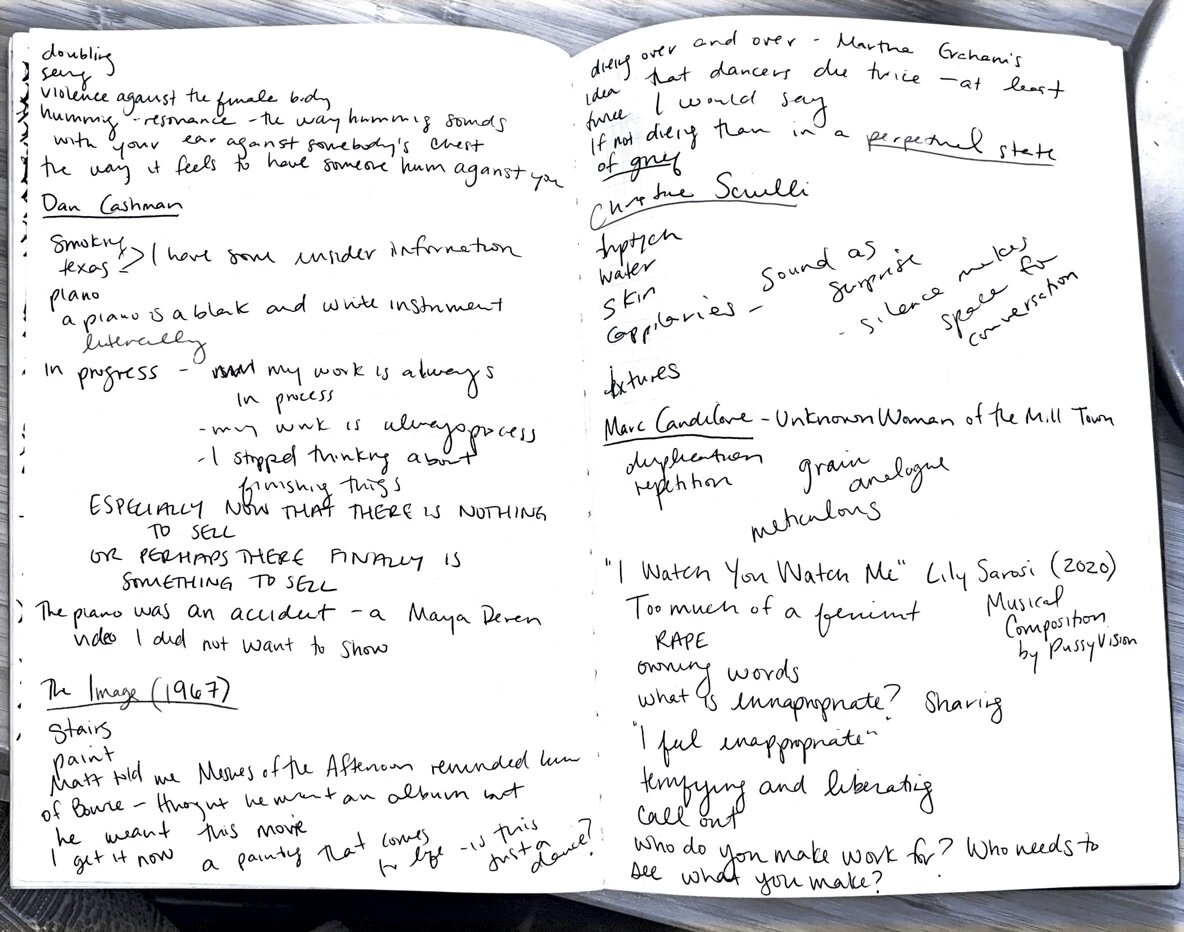 doubling
seeing
violence against the female body
humming - resonance - the way humming sounds
with your ear against somebody's chest
the way it feels to have someone hum against you
Dan Cashman
Smoking
texas > I have some insider information
piano
a piano is a black and white instrument
literally
In progress - my work is always
in process
- my work is always process
- I stopped thinking about
finishing things
ESPECIALLY NOW THAT THERE IS NOTHING
TO SELL
OR PERHAPS THERE FINALLY IS
SOMETHING TO SELL
The piano was an accident - a Maya Deren
video I did not want to show
The Image (1967)
Stairs
paint
Matt told me Meshes of the Afternoon reminded him
of Bowie - thought he meant an album but
he meant this movie
I get it now a painting that comes
to life - is this
just a
dance?
dieing over and over - Martha Graham's
idea that dancers die twice - at least
twice I would say
If not dieing than in a perpetual state
of grief
Christine Sciulli
triptych
water
skin
cappilaries - Sound as
surprise
- silence makes
space for
conversation
fixtures
Marc Candilore - Unknown Woman of the Mill Town
duplication
repetition
grain
analogue
meticulous
"I Watch You Watch Me" Lily Sarosi (2020)
Musical
Composition
by PussyVision
Too much of a feminist
RAPE
owning words
what is innapropriate? Sharing
"I feel inappropriate"
terrifying and liberating
call out
who do you make work for? Who needs to
see what you make?